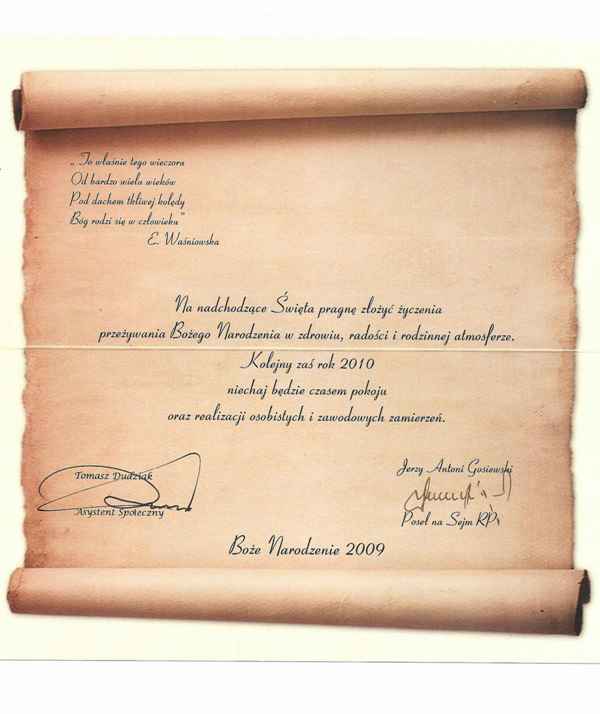 „ To właśnie tego wieczora
Od bardzo wielu wieków
Pod dachem tkliwej kolędy
Bóg rodzi się w człowieku”
E. Waśniowska
Na nadchodzące Święta pragnę złożyć życzenia
przeżywania Bożego Narodzenia w zdrowiu, radości i rodzinnej atmosferze.
Kolejny zaś rok 2010
niechaj będzie czasem pokoju
oraz realizacji osobistych i zawodowych zamierzeń.
Tomasz Dudziak
Asystent Społeczny
Jerzy Antoni Gosiewski
Poseł na Sejm RP
Boże Narodzenie 2009